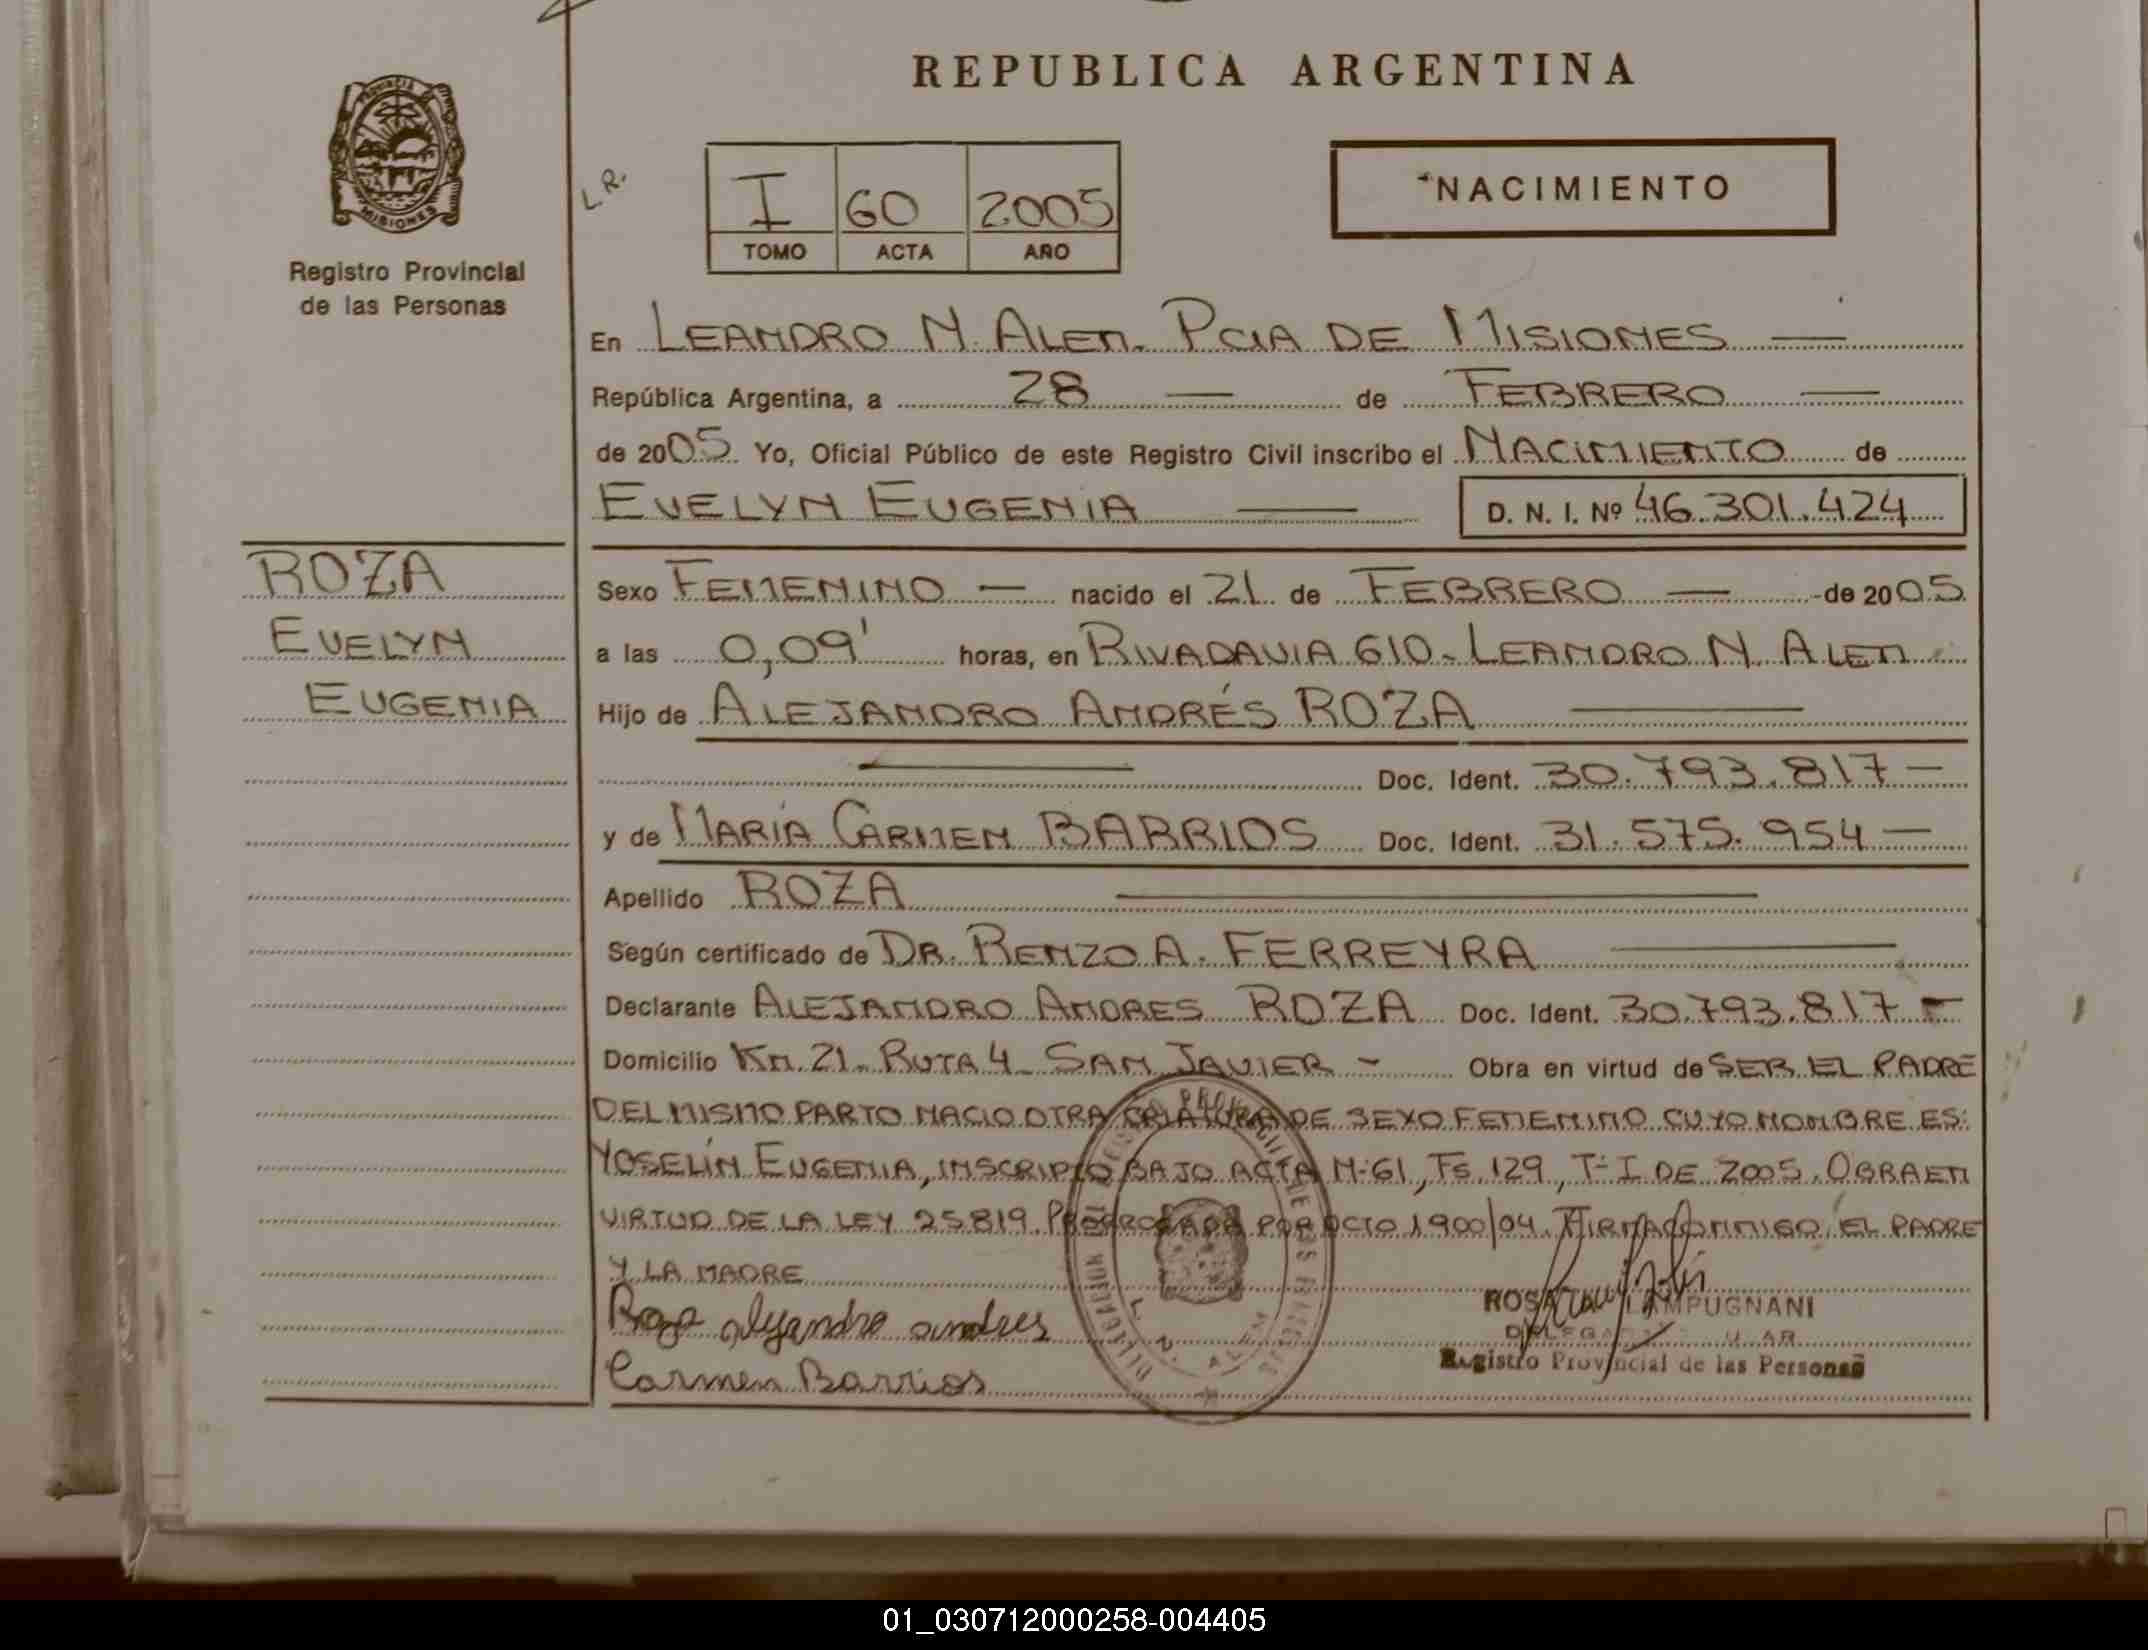 REPUBLICA ARGENTINA
PROVINCIA
MISIONES
Registro Provincial
de las Personas
L.R.
I 60 2005
TOMO ACTA AÑO
NACIMIENTO
En LEANDRO N. ALEM. PCIA DE MISIONES —
República Argentina, a 28 — de FEBRERO —
de 2005. Yo, Oficial Público de este Registro Civil inscribo el NACIMIENTO de
EVELYN EUGENIA — D. N. I. Nº 46.301.424
ROZA
EVELYN
EUGENIA
Sexo FEMENINO — nacido el 21 de FEBRERO — de 2005
a las 0,09' horas, en RIVADAVIA 610 - LEANDRO N. ALEM
Hijo de ALEJANDRO ANDRÉS ROZA —
— Doc. Ident. 30.793.817 —
y de MARÍA CARMEN BARRIOS Doc. Ident. 31.575.954 —
Apellido ROZA —
Según certificado de DR. RENZO A. FERREYRA —
Declarante ALEJANDRO ANDRES ROZA Doc. Ident. 30.793.817 -
Domicilio Km. 21. RUTA 4 - SAN JAVIER - Obra en virtud de SER EL PADRE
DEL MISMO PARTO NACIO OTRA CRIATURA DE SEXO FEMENINO CUYO NOMBRE ES:
YOSELÍN EUGENIA, INSCRIPTO BAJO ACTA Nº 61, Fs. 129, Tº I DE 2005. OBRA EN
VIRTUD DE LA LEY 25819. PRORROGADA POR DCTO 1900/04. FIRMA CONMIGO EL PADRE
Y LA MADRE
Roza alejandro andres
Carmen Barrios
L. N. ALEM
LAMPUGNANI
Registro Provincial de las Personas
01_030712000258-004405